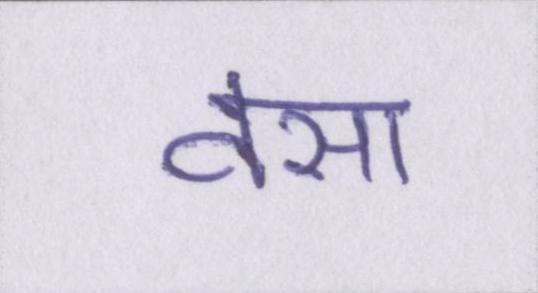 वंसा